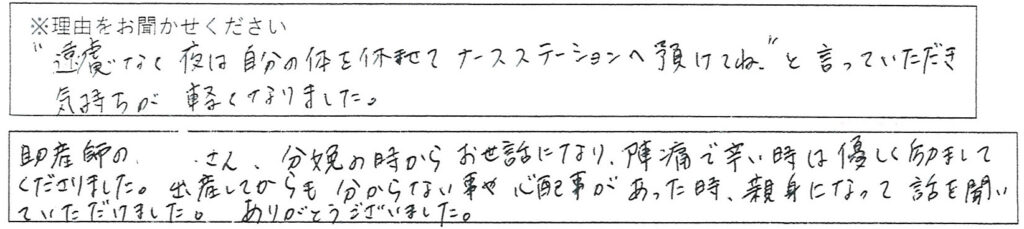 ※理由をお聞かせください
"遠慮なく夜は自分の体を休ませてナースステーションへ預けてね。"と言っていただき
気持ちが軽くなりました。
助産師の さん、分娩の時からお世話になり、陣痛で辛い時は優しく励まして
くださりました。出産してからも分からない事や心配事があった時、親身になって話を聞い
ていただけました。ありがとうございました。